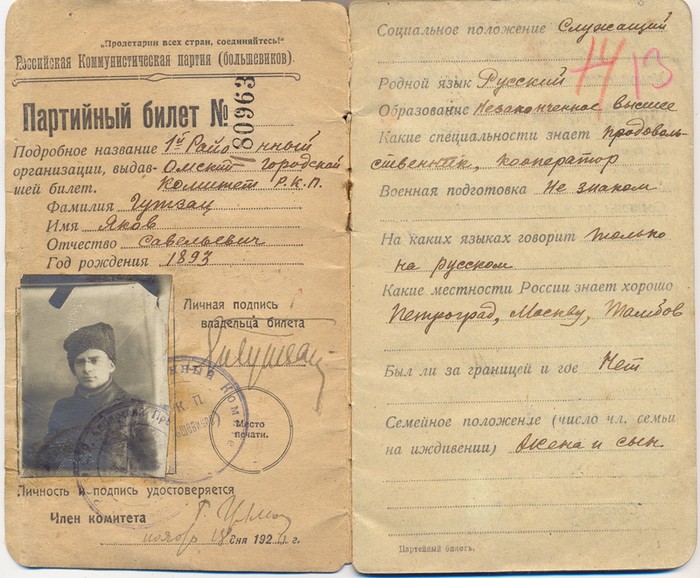 „Пролетарии всех стран, соединяйтесь!“
Российская Коммунистическая партия (большевиков).
Партийный билет №
180963
Подробное название 1й Районный
организации, выдав- Омский городской
шей билет. Комитет Р.К.П.
Фамилия Гутзац
Имя Яков
Отчество Савельевич
Год рождения 1893
Личная подпись
владельца билета
Место
печати.
Личность и подпись удостоверяется
Член комитета
ноябрь 18 дня 192 г.
Социальное положение Служащий
13
Родной язык Русский
Образование Незаконченное высшее
Какие специальности знает продоволь-
ственник, кооператор
Военная подготовка Не знаком
На каких языках говорит только
на русском
Какие местности России знает хорошо
Петроград, Москву, Тамбов
Был ли за границей и где Нет
Семейное положение (число чл. семьи
на иждивении) Жена и сын
Партейный билетъ.